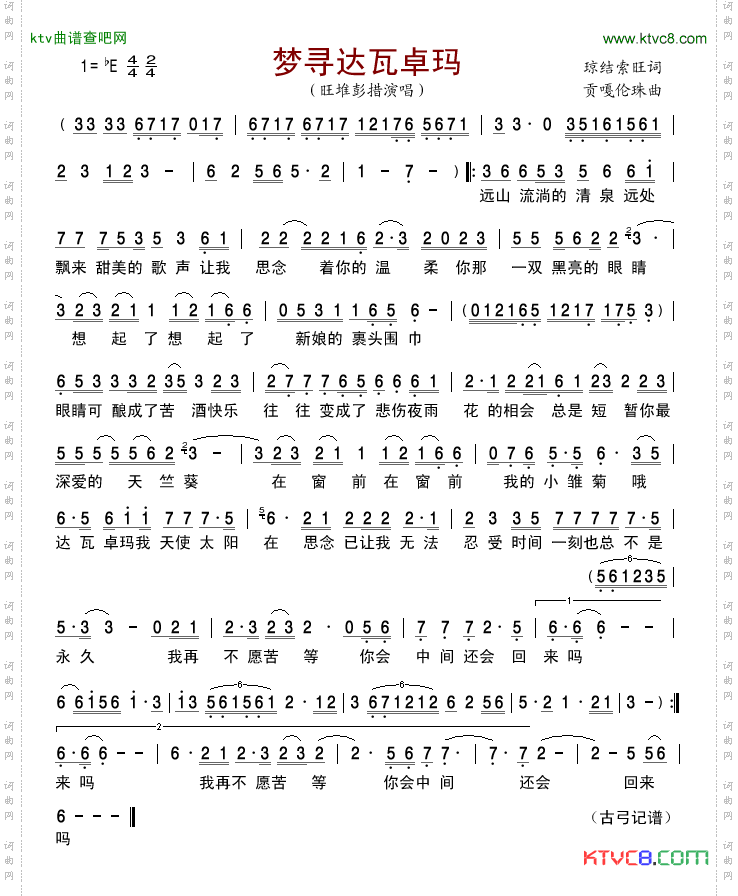 ktv曲谱查吧网
www.ktvc8.com
1=♭E 4/4 2/4
梦寻达瓦卓玛
琼结索旺词
(旺堆彭措演唱)
贡嘎伦珠曲
( 33 33 6717 017 | 6717 6717 12176 5671 | 3 3·0 35161561 |
2 3 123 - | 6 2 565·2 | 1 - 7 - ) ‖: 36 653 5 6 61
远山 流淌的 清 泉 远处
77 7535 3 61 | 22 2216 2·3 2023 | 55 5622 23· |
飘来 甜美的 歌 声 让我 思念 着你的 温 柔 你那 一双 黑亮的 眼 睛
323 211 12 166 | 0531165 6 - | (012165 1217 175 3) |
想 起 了 想 起 了 新娘的 裹头围 巾
653 332 35 323 | 27 7765 6 661 | 2·1 2216 123 223 |
眼睛可 酿成了 苦 酒快乐 往 往 变成了 悲伤夜雨 花 的相会 总是 短 暂你最
555 5562 23 - | 323 21 1 12 166 | 076 5·5 6· 35 |
深爱的 天 竺 葵 在 窗 前 在 窗 前 我的 小 雏 菊 哦
6·5 611 777·5 | 56· 21 222 2·1 | 23 35 7777 7·5 |
达 瓦 卓玛我 天使 太 阳 在 思念 已让我 无 法 忍 受 时间 一刻也总 不 是
6
(561235
1
5·3 3 - 021 | 2·3 23 2·056 | 77 77 2·5 | 6·6 6 - - |
永 久 我再 不 愿苦 等 你会 中 间 还会 回 来吗
6 6
6 6156 1·3 | 13 561561 2·12 | 3 671212 62 56 | 5·2 1·21 | 3 - ) :‖
2
6·6 6 - - | 6·21 2·3 23 2· | 2·56 7 7· | 7·2 2 - | 2 - 5 56 |
来 吗 我再不 愿苦 等 你会中 间 还会 回来
6 - - - ‖
(古弓记谱)
吗
KTVC8.COM
词曲网